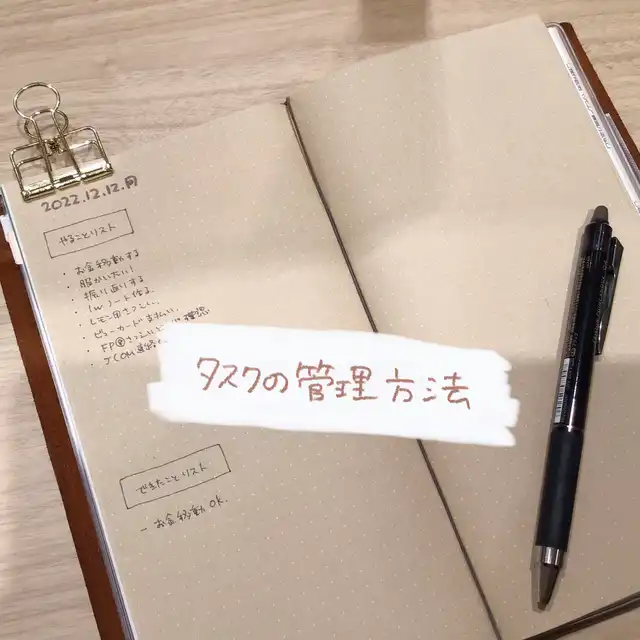 2022.12.12.月
やることリスト
・お金移動する
・服かいたい!
・振り返りする
・1wノート作る。
・レモン田さつしい、
・ビューカード支払い。
・FP 確認
・JCOM連絡
タスクの管理方法
できたことリスト
- お金移動OK.